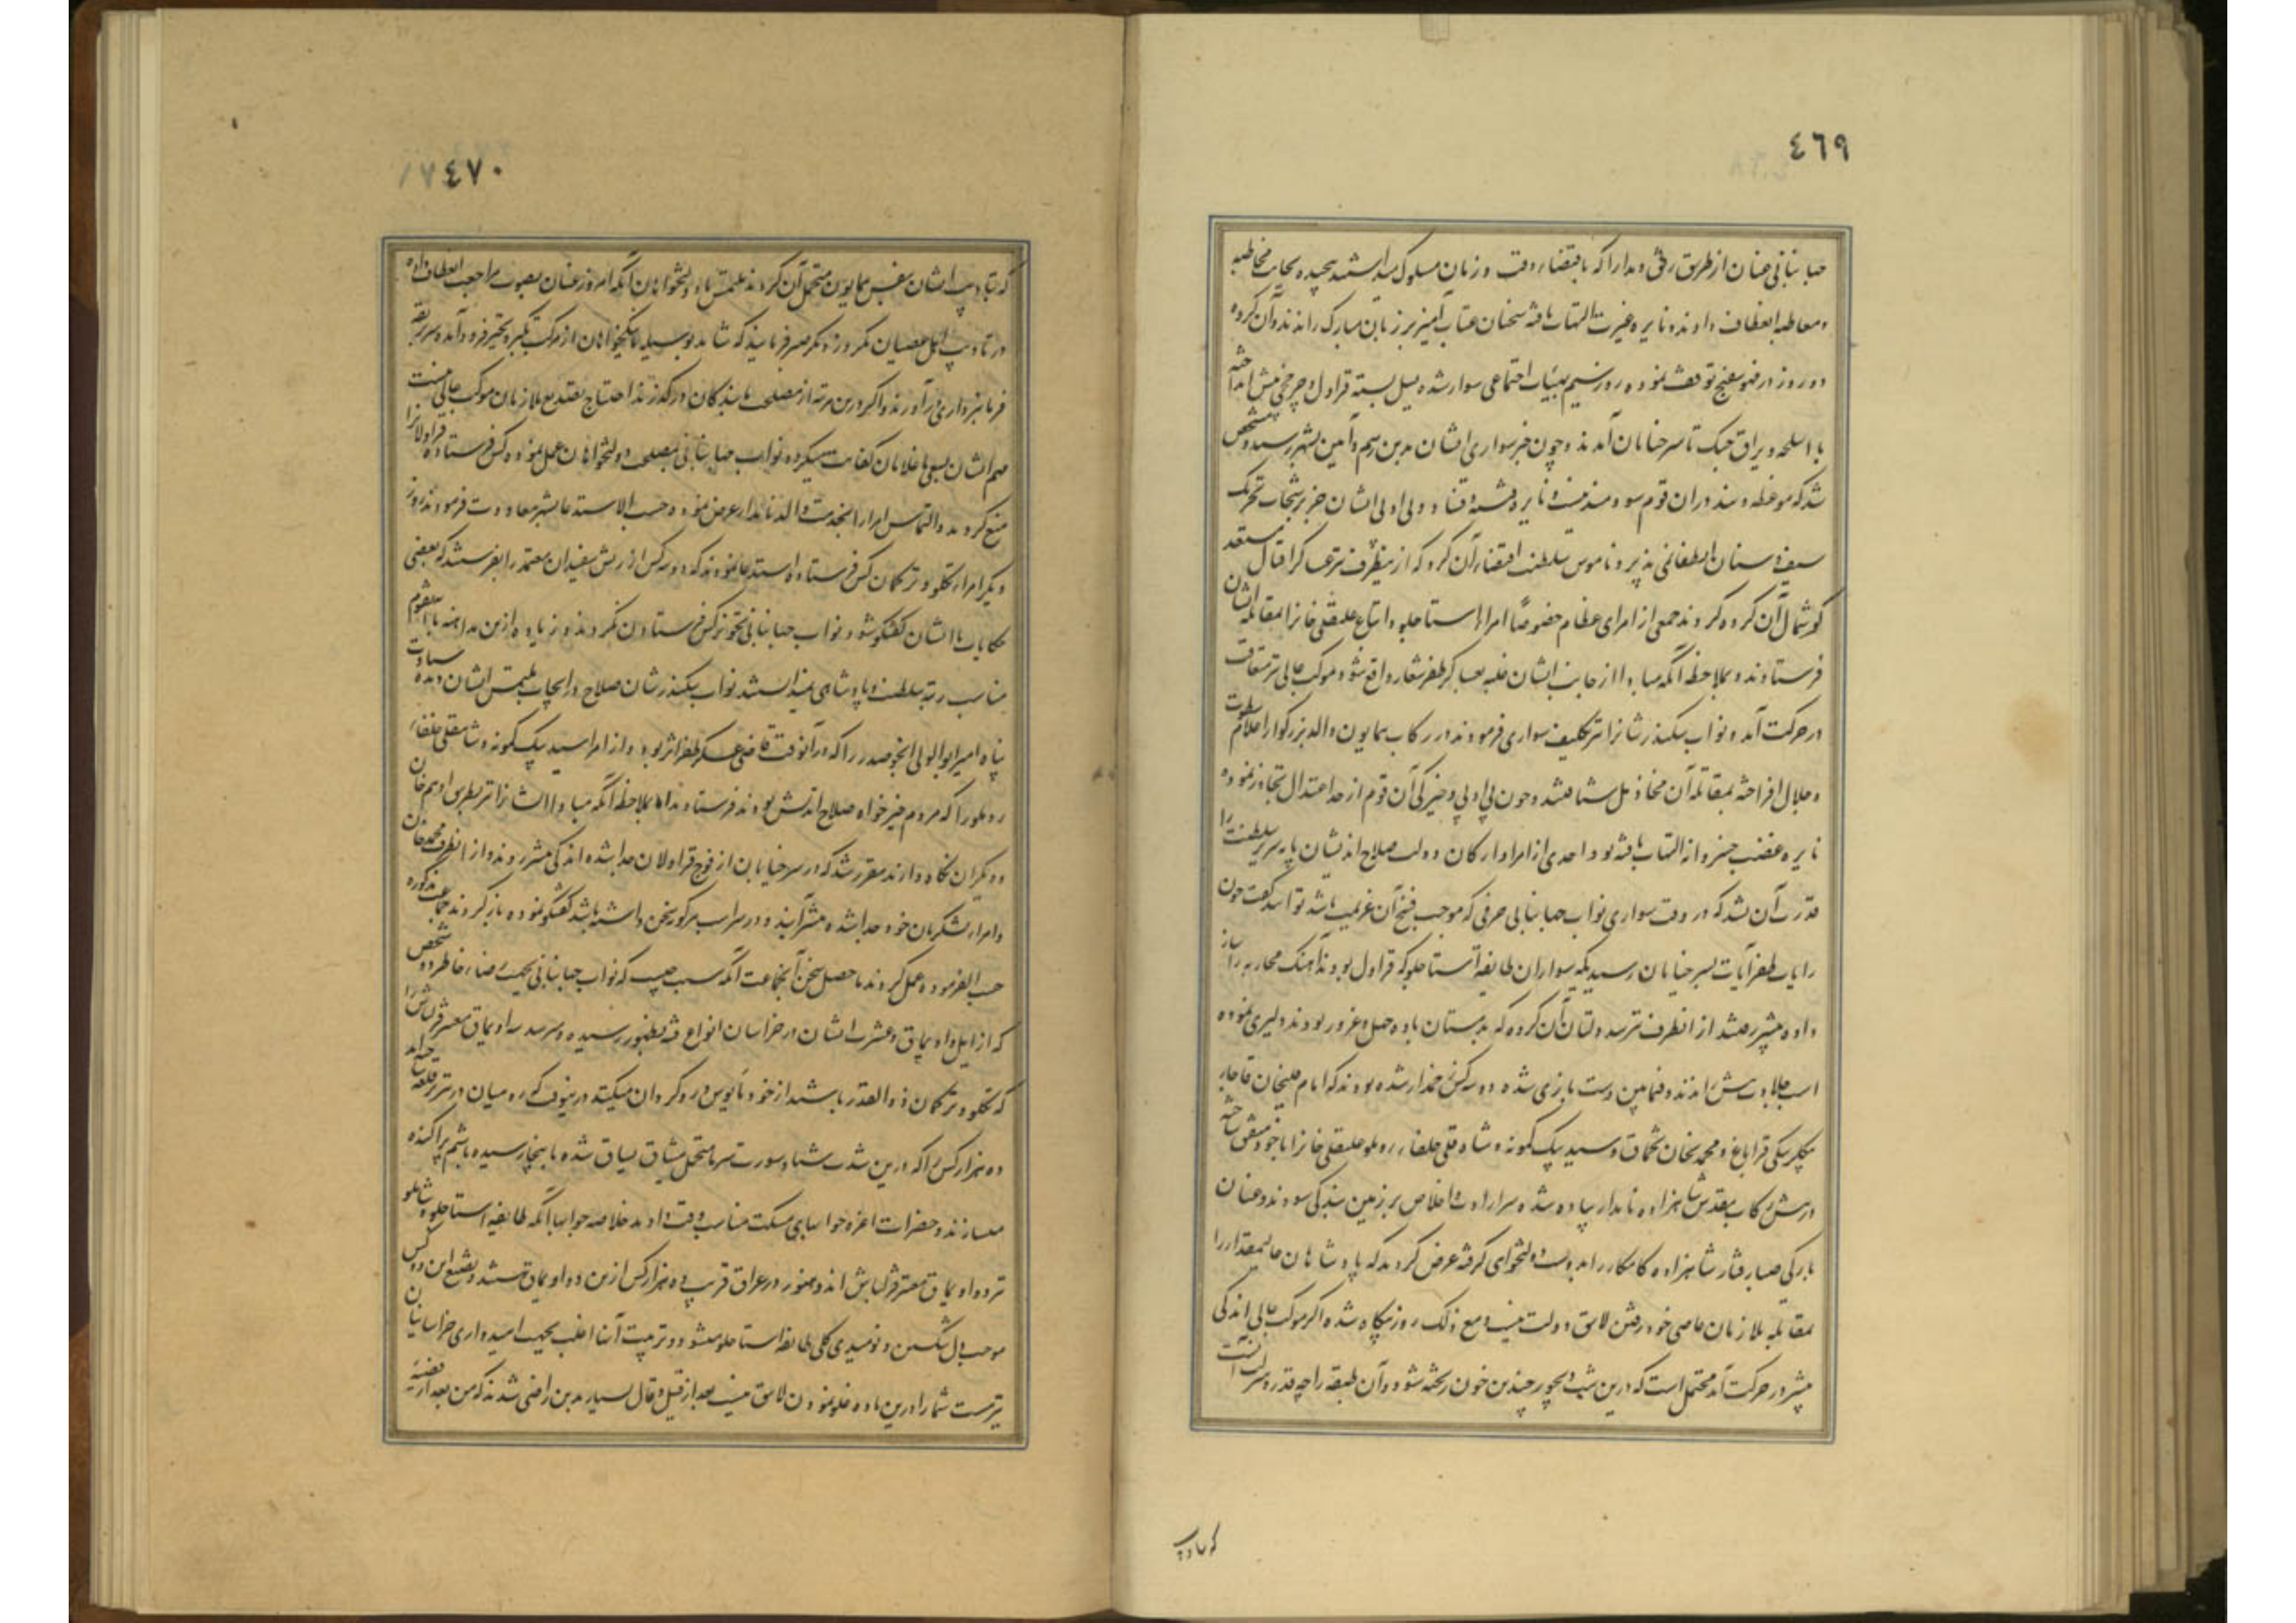 ٤٦٩
جهانبانی عنان از طریق رفق و مدارا که باقتضاء وقت و زمان مسلوک میداشتند پیچیده بجانب مخاطبه
و معاطبه انعطاف دادند و نایره غیرت التهاب یافته سخنان عتاب آمیز بر زبان مبارک راندند و آن گروه
دو روز در قهوسفنج توقف نموده روز سیم بهیئات اجتماعی سوار شده یسل بسته قراول و چرخچی پیش انداخته
با اسلحه و یراق جنگ تا سر خیابان آمدند و چون خبر سواری ایشان بدین رسم و آیین بشهر رسید و مشخص
شد که موعظه و پند در آن قوم سودمند نیست و نایره فتنه و فساد و بی ادبی ایشان جز برشحات تحریک
سیف و سنان انطفا نمی پذیرد ناموس سلطنت اقتضاء آن کرد که ازینطرف نیز عساکر اقبال مستعد
گوشمال آن گروه گردند جمعی از امرای عظام خصوصاً امراء استاجلو و اتباع علیقلی خانرا بمقابله ایشان
فرستادند و بملاحظه آنکه مبادا از جانب ایشان غلبه بعساکر ظفر شعار واقع شود موکب عالی نیز متعاقب
در حرکت آمد و نواب سکندر شانرا نیز تکلیف سواری فرمودند در رکاب همایون والد بزرگوار اعلام سطوت
و جلال افراخته بمقابله آن مخاذیل شتافتند و چون بی ادبی و خیرگی آن قوم از حد اعتدال تجاوز نموده
نایره غضب خسروانه التهاب یافته بود احدی از امرا و ارکان دولت صلاح اندیشان پایه سریر سلطنت را
قدرت آن نشد که در وقت سواری نواب جهانبانی حرفی که موجب فسخ آن عزیمت باشد تواند گفت چون
رایات ظفر آیات بسر خیابان رسید یکه سواران طایفه استاجلو که قراول بودند آهنگ محاربه را ساز
داده پیشتر رفتند از انطرف نیز سه دلتان آن گروه که بدمستان باده جهل و غرور بودند دلیری نموده
اسب جلادت پیش راندند و فیمابین دست بازی شده دو سه کس زخمدار شده بودند که امام قلیخان قاجار
بیگلربیگی قراباغ و محمدیخان تخماق و سید بیک کمونه و شاه قلی خلفاء روملو علیقلی خانرا با خود متفق ساخته
در پیش رکاب مقدس شاهزاده نامدار پیاده شده سر ارادت و اخلاص بر زمین بندگی سودند و عنان
بارگی صبا رفتار شاهزاده کامکار را بدست دولتخواهی گرفته عرض کردند که پادشاهان عالیمقدار را
بمقابله ملازمان عاصی خود رفتن لایق دولت نیست و مع ذلک روز بیگاه شده اگر موکب عالی اندکی
پیشتر در حرکت آید محتمل است که درین شب دیجور چندین خون ریخته شود و آن طبقه را چه قدر و منزلت آنست
که بتادیب
٤٧٠
که بتادیب ایشان بنفس همایون متحمل آن گردند ملتمس ما دولتخواهان آنکه امروز عنان بصوب مراجعت انعطاف داده
در تادیب اهل عصیان یکروز دیگر صبر فرمایند که شاید بوسیله ما نیکخواهان از مرکب تکبر و تجبر فرود آمده سر بربقه
فرمانبرداری درآورند و اگر درین مرتبه از مصلحت ما بندگان درگذرند احتیاج بتصدیع ملازمان موکب عالی نیست
مهم ایشان بسعی ما غلامان کفایت میگردد نواب جهانبانی بمصلحت دولتخواهان عمل نموده کس فرستاده قراولانرا
منع کردند و التماس امرا را بخدمت والد نامدار عرض نموده حسب الاستدعا بشهر معاودت فرمودند روز
دیگر امراء تکلو و ترکمان کس فرستاده استدعا نمودند که دو سه کس از ریش سفیدان معتمد را بفرستند که بعضی
حکایات با ایشان گفتگو شود نواب جهانبانی تجویز کس فرستادن نکردند و زیاده ازین مداهنه با آنقوم
مناسب رتبه سلطنت و پادشاهی نمیدانستند نواب سکندر شان صلاح در انجاح ملتمس ایشان دیده سیادت
پناه امیر ابوالولی انجو صدر را که در آنوقت قاضی عسکر ظفر اثر بود و از امرا سید بیک کمونه و شاهقلی خلفاء
روملو را که مردم خیرخواه صلاح اندیش بودند فرستادند اما بملاحظه آنکه مبادا ایشانرا نیز بطریق ادهم خان
و دیگران نگاه دارند مقرر شد که در سر خیابان از فوج قراولان جدا شده اندکی پیشتر روند و از انطرف محمد خان
و امراء لشکریان خود جدا شده پیشتر آیند و در سر اسب هر گونه سخن داشته باشند گفتگو نموده بازگردند جماعت مذکوره
حسب الفرموده عمل کردند ماحصل سخن آنجماعت آنکه سبب چیست که نواب جهانبانی بجهت رضاء خاطر دو شخص
که از ایل و اویماق و عشیرت ایشان در خراسان انواع فتنه بظهور رسیده و میرسد سه اویماق معتبر قزلباش را
که تکلو و ترکمان و ذوالقدر باشند از خود مأیوس و روگردان میکنند درینوقت که رومیان در تبریز قلعه ساخته اند
ده هزار کس را که درین شدت شتا و سورت سرما متحمل مشاق یساق شده باینجا رسیده باشیم پراکنده
میسازند و حضرات اعزه جوابهای مسکت مناسب وقت دادند خلاصه جوابها آنکه طایفه استاجلو و شاملو
نیز دو اویماق معتبر قزلباش اند و هنوز در عراق قریب ده هزار کس ازین دو اویماق هستند و تضییع این دو کس
موجب دل شکستن و نومیدی کلی طایفه استاجلو میشود و تربیت آنها اغلب بجهت امیدواری خراسانیان
نیز هست شما را درین ماده غلو نمودن لایق نیست بعد از قیل و قال بسیار بدین راضی شدند که من بعد از قضیه